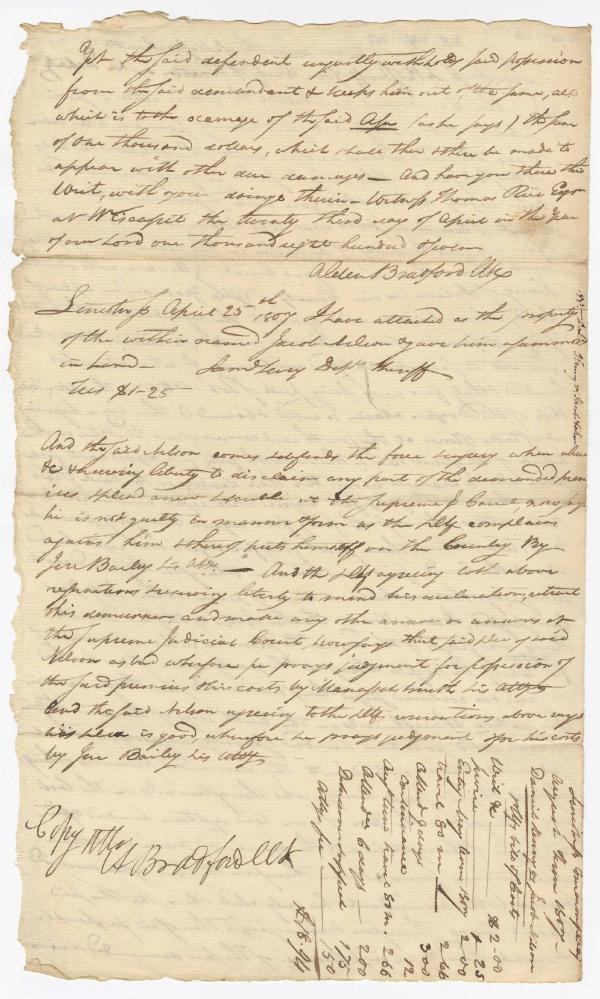 Yet the said defendent unjustly withholds said possession
from the said demandant & keeps him out of the same, all
which is to the damage of the said (as he says) the sum
of one thousand dollars, which shall then & there be made to
appear with other due damages — And have you there this
Writ, with your doings therein — Witness Thomas Rice Esqr
at Wiscasset the twenty third day of April in the Year
of our Lord one thousand eight hundred & seven
Alden Bradford Clk
Lincoln Ss April 25th 1807 I have attached as the property
of the within named Jacob Nelson & gave him a summons
in hand — Saml Sevey Depy Sheriff
Fees $1-25
And the said Nelson comes & defends the force & injury when & where
&c & reserving liberty to disclaim any part of the demanded prem
ises & plead anew & double at the Supreme J Court, now says
he is not guilty in manner & form as the Plff complains
against him & thereof puts himself on the Country By
Jere Bailey his Atty — And the plff agreeing to the above
reservations & reserving liberty to mend his declaration, retract
this demurrer, and make any other answer or answers at
the Supreme Judicial Court, now says that said plea of said
Nelson is bad wherefore he prays judgment for possession of
the said premises & his costs by Manasseh Smith his Atty
And the said Nelson agreeing to the Plffs reservations above says
his plea is good, wherefore he prays judgment & for his costs
by Jere Bailey his Atty
Copy Attest
A Bradford Clk
Lincoln Ss Common Pleas
August Term 1807 —
Daniel Henry vs Jacob Nelson
Plffs bill of Costs
Writ &c $2.00
Service 1.25
Entry Aug Term 1807 2.00
travel 80 m 2.66
Attend 9 days 3.00
Continuance 12
travel 80 m. 2.66
Attendce 6 days — 2.00
1.75
Atty fee 1.50
$18.94